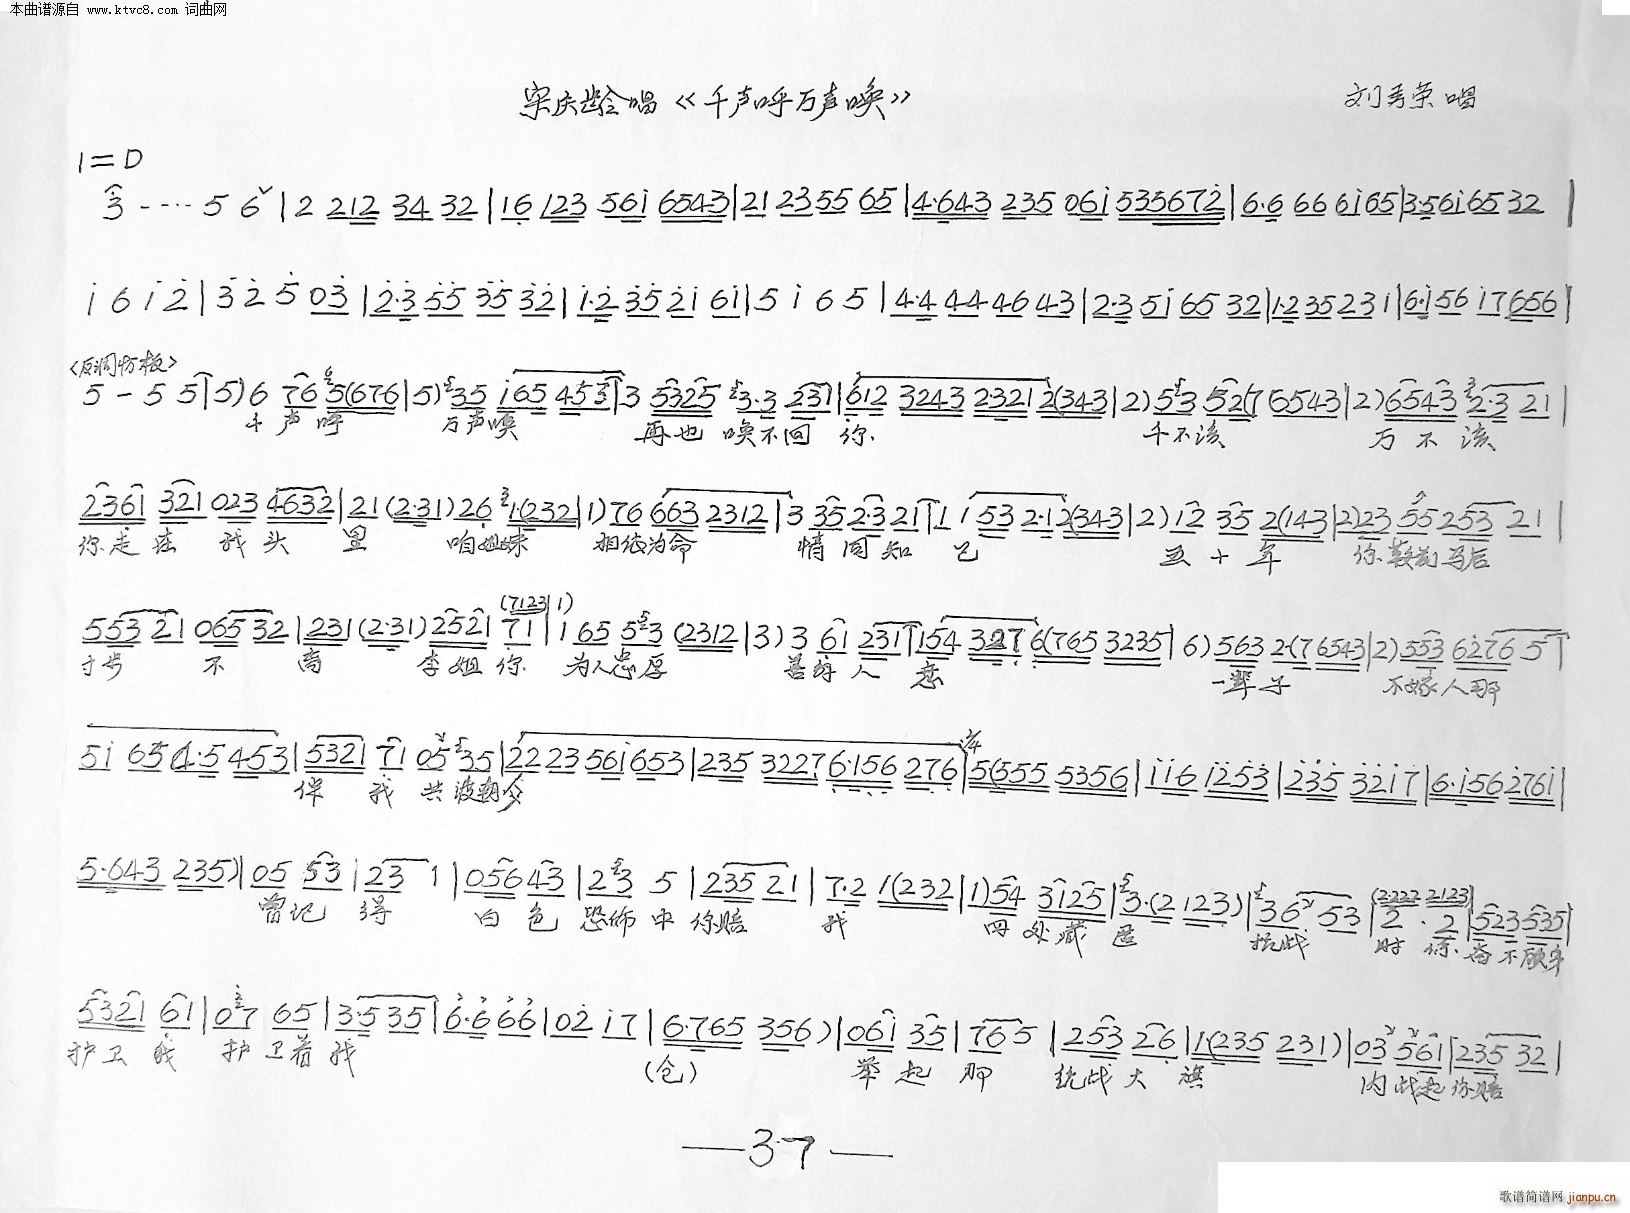 本曲谱源自 www.ktvc8.com 词曲网
宋庆龄唱《千声呼万声唤》 刘秀荣唱
1=D
3 - ---- 5 6 | 2 212 34 32 | 16 123 561 6543 | 21 23 55 65 | 4·643 235 061 535672 | 6·6 66 61 65 | 3·5 61 65 32 |
1 6 1 2 | 3 2 5 03 | 2·3 55 35 32 | 1·2 35 21 61 | 5 1 6 5 | 4·4 44 46 43 | 2·3 51 65 32 | 1·2 35 23 1 | 6·156 17 656 |
5 - 5 5 | 5) 6 76 5(676 | 5) 35 165 453 | 3 5325 3·3 231 | 612 3243 2321 2(343 | 2) 53 52(7 6543 | 2) 6543 2·3 21 |
千声呼 万声唤 再也唤不回你 千不该 万不该
2361 321 023 4632 | 21 (2·31) 26 1(232 | 1) 76 663 2312 | 3 35 2·3 21 | 1 1 53 2·12(343 | 2) 12 35 2(143 | 2) 23 55 253 21 |
你走在我头里 咱姐妹 相依为命 情同知己 五十年 你鞍前马后
(7123 | 1)
553 21 065 32 | 231 (2·31) 2521 71 | 1 65 53 (2312 | 3) 3 61 231 | 154 327 6(765 3235 | 6) 563 2·(7 6543 | 2) 553 6276 5 |
寸步不离 李姐你 为人忠厚 善解人意 一辈子 不嫁人那
51 65 4·5 453 | 5321 71 05 35 | 22 23 561 653 | 235 3227 6·156 276 | 5(555 5356 | 116 1253 | 235 3217 | 6·156 2761 |
伴我共渡朝夕
5·643 235) | 05 53 | 23 1 | 056 43 | 23 5 | 235 21 | 7·2 1(232 | 1) 54 3125 | 3·(2 123) | 36 53 | 2·2 | 523 535 |
(2·222 2123)
曾记得 白色恐怖中你陪我 四处藏匿 抗战时你奋不顾身
5321 61 | 07 65 | 3·5 35 | 6·6 66 | 02 17 | 6·765 356) | 061 35 | 76 5 | 253 26 | 1(235 231) | 03 561 | 235 32 |
护卫我 护卫着我 (仓) 举起那 统战大旗 内战起你陪
—37—
歌谱简谱网 jianpu.cn